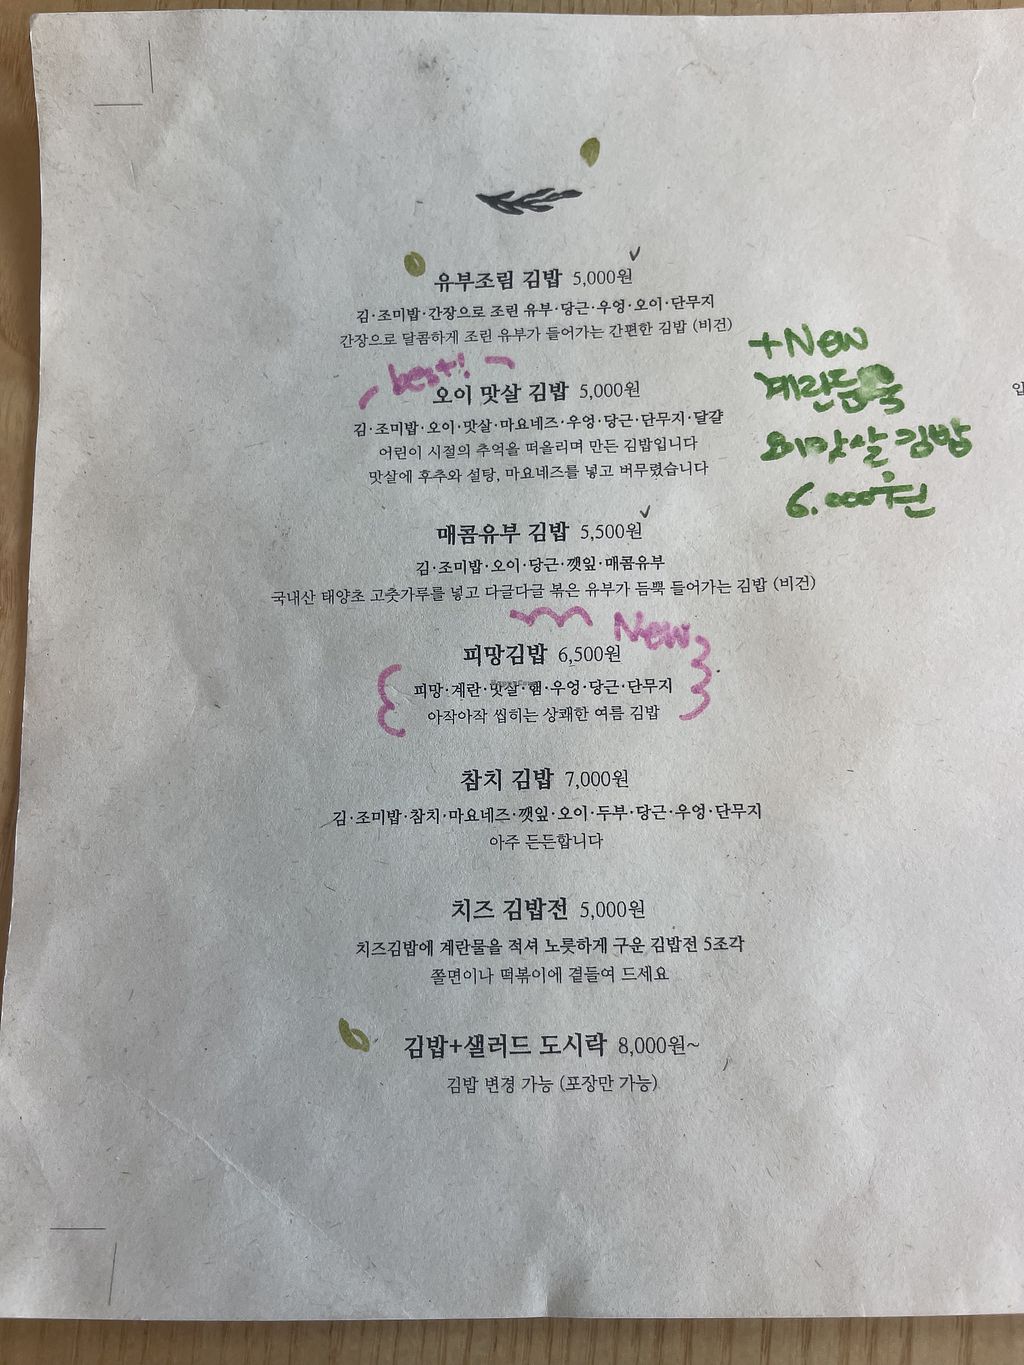 유부조림 김밥 5,000원
김·조미밥·간장으로 조린 유부·당근·우엉·오이·단무지
간장으로 달콤하게 조린 유부가 들어가는 간편한 김밥 (비건)
best!
오이 맛살 김밥 5,000원
김·조미밥·오이·맛살·마요네즈·우엉·당근·단무지·달걀
어린이 시절의 추억을 떠올리며 만든 김밥입니다
맛살에 후추와 설탕, 마요네즈를 넣고 버무렸습니다
+New
계란듬뿍
오이맛살 김밥
6.000원
매콤유부 김밥 5,500원
김·조미밥·오이·당근·깻잎·매콤유부
국내산 태양초 고춧가루를 넣고 다글다글 볶은 유부가 듬뿍 들어가는 김밥 (비건)
New
피망김밥 6,500원
피망·계란·맛살·햄·우엉·당근·단무지
아작아작 씹히는 상쾌한 여름 김밥
참치 김밥 7,000원
김·조미밥·참치·마요네즈·깻잎·오이·두부·당근·우엉·단무지
아주 든든합니다
치즈 김밥전 5,000원
치즈김밥에 계란물을 적셔 노릇하게 구운 김밥전 5조각
쫄면이나 떡볶이에 곁들여 드세요
김밥+샐러드 도시락 8,000원~
김밥 변경 가능 (포장만 가능)